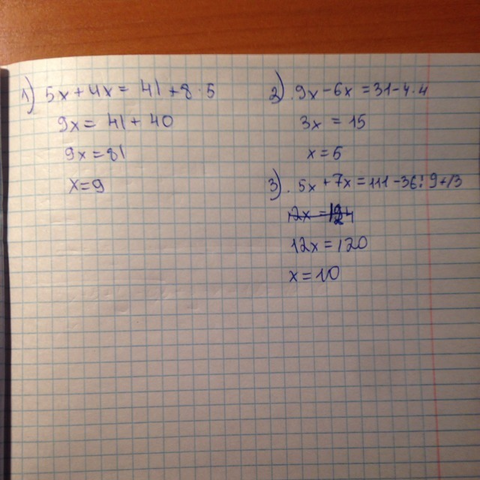 1) 5x + 4x = 41 + 8 · 5
9x = 41 + 40
9x = 81
x = 9
2) 9x - 6x = 31 - 4 · 4
3x = 15
x = 5
3) 5x + 7x = 111 - 36 : 9 + 13
12x =
12x = 120
x = 10